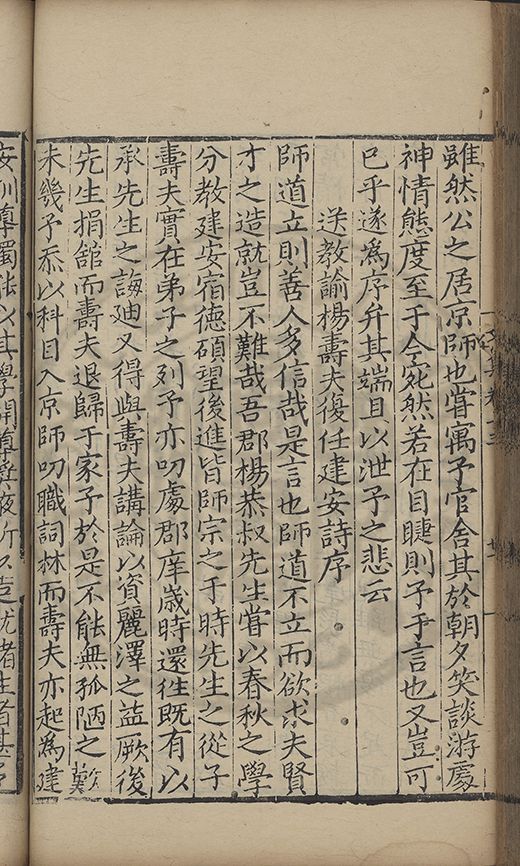 雖然公之居京師也甞寓予官舍其於朝夕笑談游處
神情態度至于今宛然若在目睫則予于言也又豈可
已乎遂為序弁其端且以泄予之悲云
送教諭楊壽夫復任建安詩序
師道立則善人多信哉是言也師道不立而欲求夫賢
才之造就豈不難哉吾郡楊恭叔先生甞以春秋之學
分教建安宿德碩望後進皆師宗之于時先生之從子
壽夫實在弟子之列予亦叨處郡庠歲時還往既有以
承先生之誨廸又得與壽夫講論以資麗澤之益厥後
先生捐舘而壽夫退歸于家予於是不能無孤陋之歎
未幾予忝以科目入京師叨職詞林而壽夫亦起為建